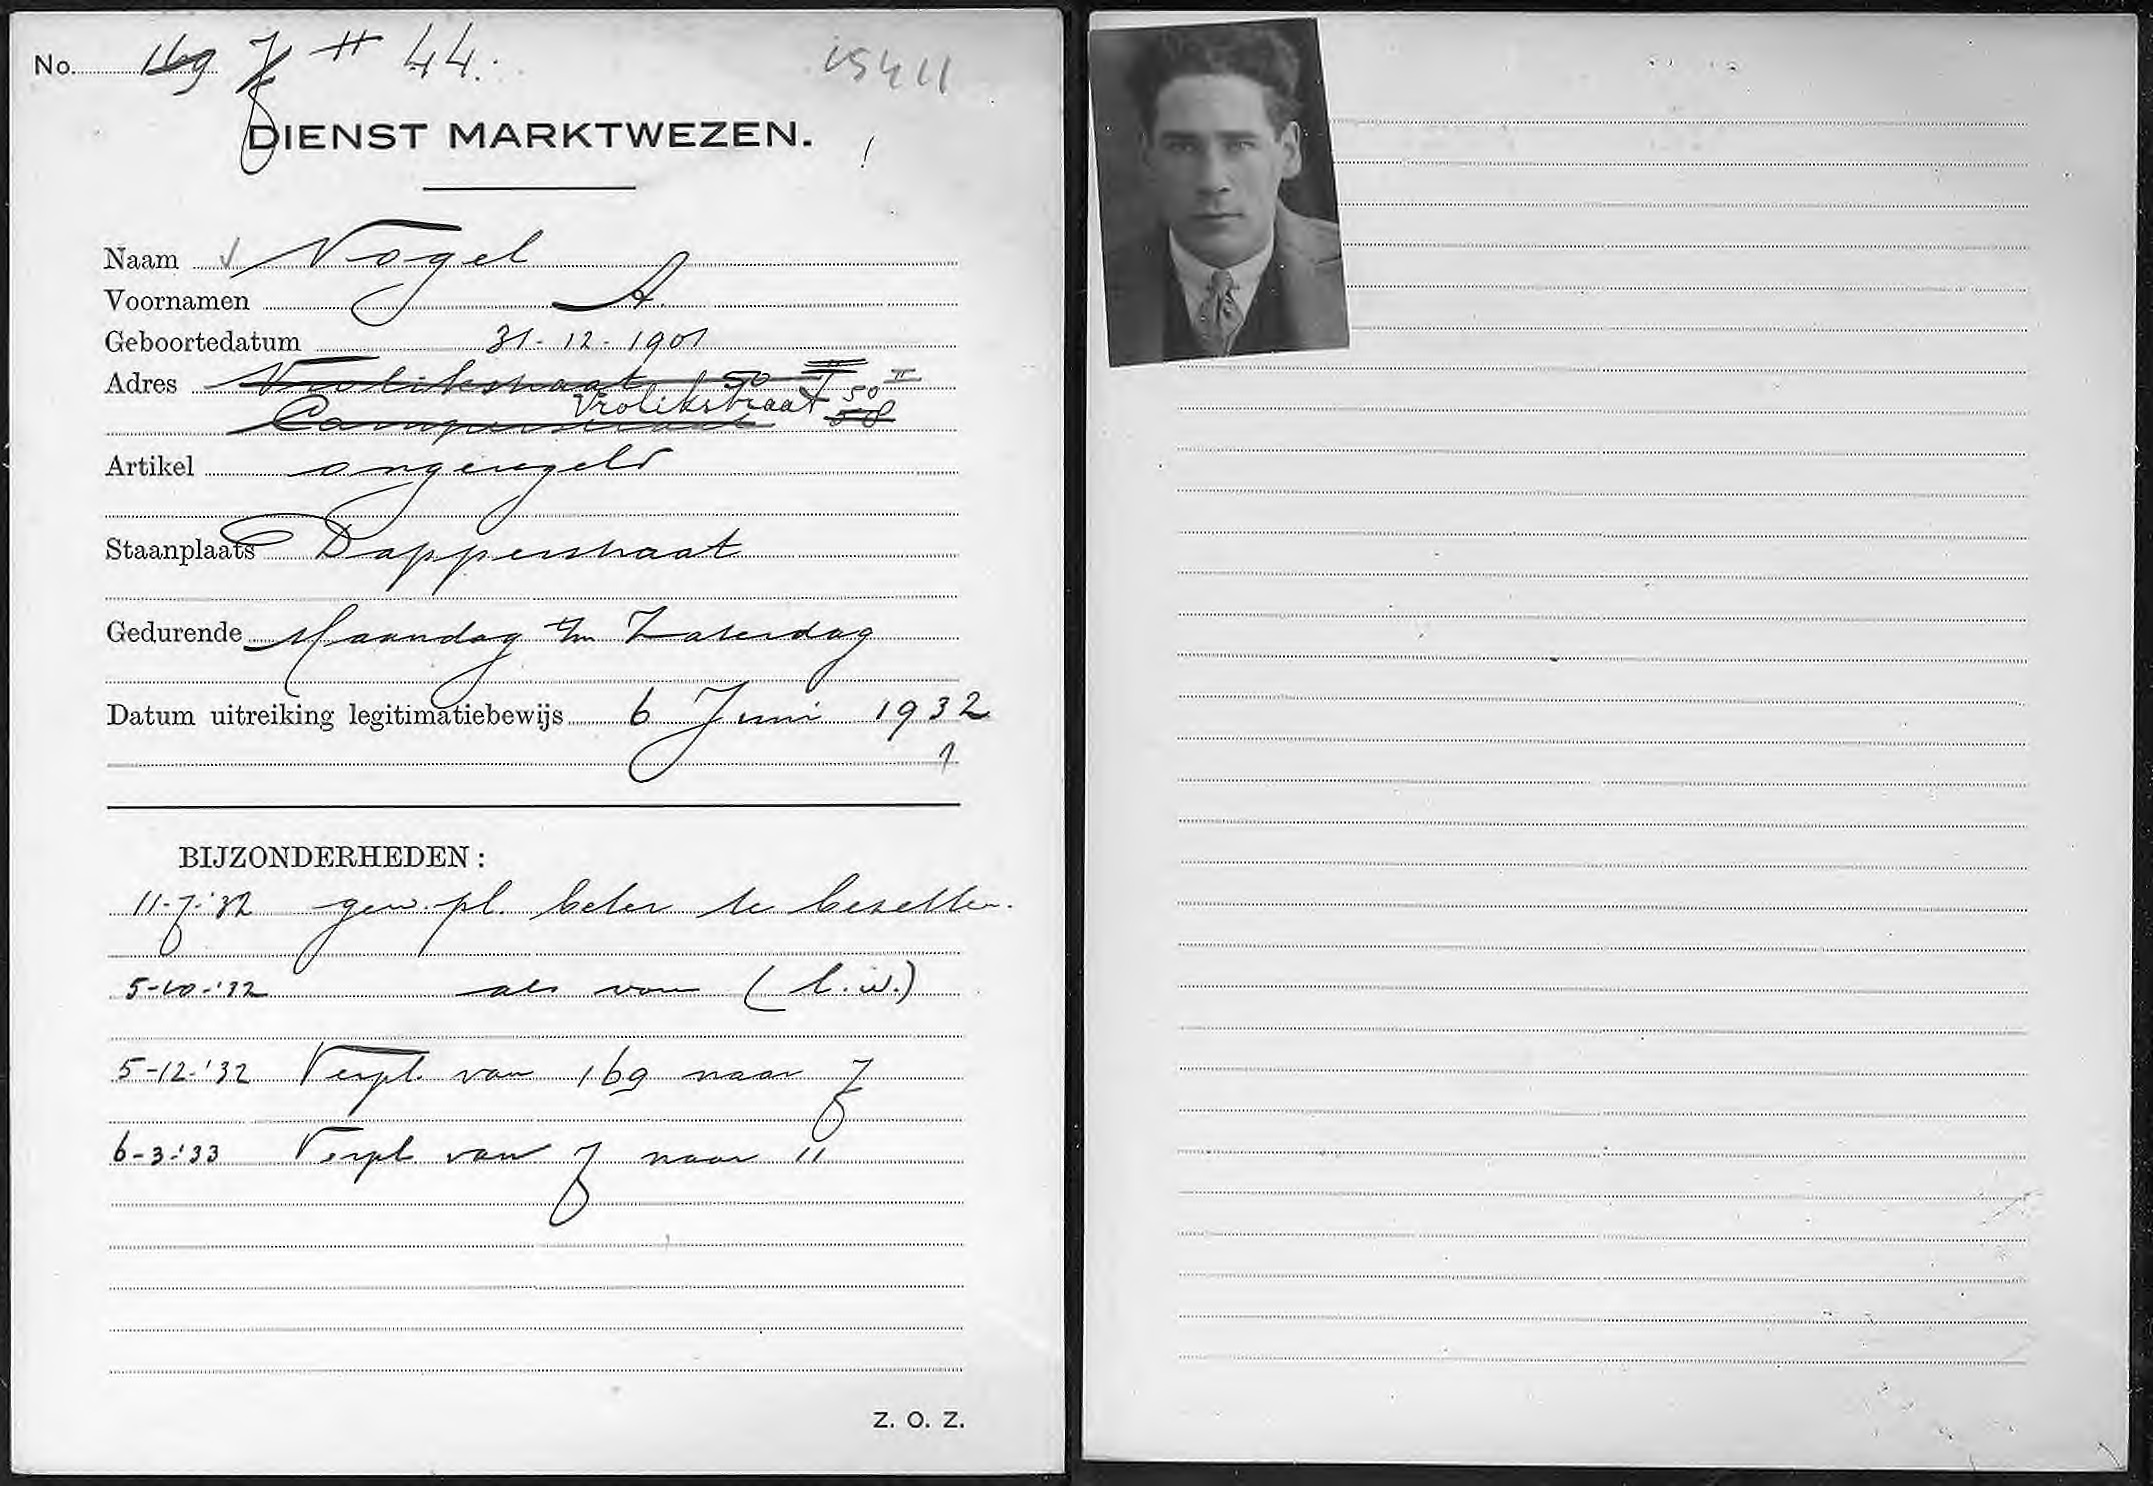 No. 169 7 11 44.
15411
DIENST MARKTWEZEN.
Naam Vogel
Voornamen A.
Geboortedatum 31-12-1901
Adres Vrolikstraat 50 II
Vrolikstraat 50 II
Camperstraat 58
Artikel ongeregeld
Staanplaats Dapperstraat
Gedurende Maandag t/m Zaterdag
Datum uitreiking legitimatiebewijs 6 Juni 1932
BIJZONDERHEDEN:
11-7-'32 gew. pl. beter te bezetten.
5-10-'32 als van
5-12-'32 Verpl. van 169 naar 7
6-3-'33 Verpl. van 7 naar 11
Z. O. Z.